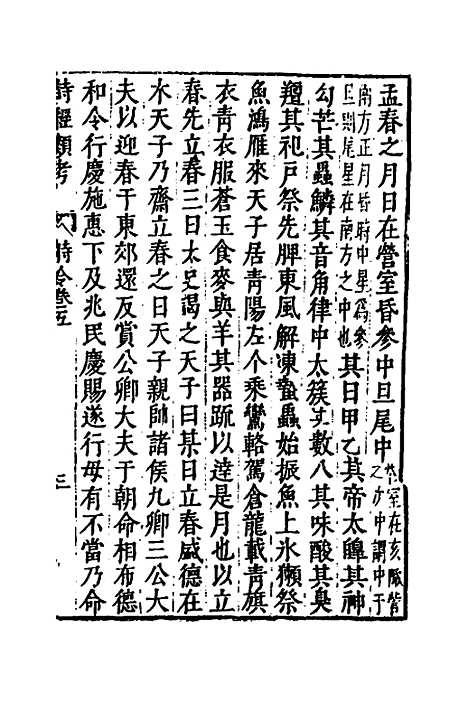 孟春之月日在營室昏參中旦尾中營室在亥陬訾之次中謂中于
南方正月昏時中星為參旦則尾星在南方之中也其日甲乙其帝太皥其神
勾芒其蟲鱗其音角律中太簇其數八其味酸其臭
羶其祀戶祭先脾東風解凍蟄蟲始振魚上氷獺祭
魚鴻雁來天子居青陽左个乘鸞輅駕倉龍載青旗
衣青衣服蒼玉食麥與羊其器疏以達是月也以立
春先立春三日太史謁之天子曰某日立春盛德在
木天子乃齋立春之日天子親帥諸侯九卿三公大
夫以迎春于東郊還反賞公卿大夫于朝命相布德
和令行慶施惠下及兆民慶賜遂行毋有不當乃命
詩經類考 時令卷五 三